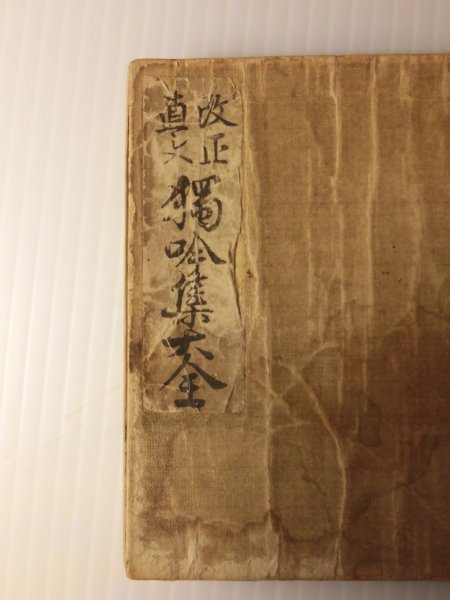 改正
直文
獨吟集大全